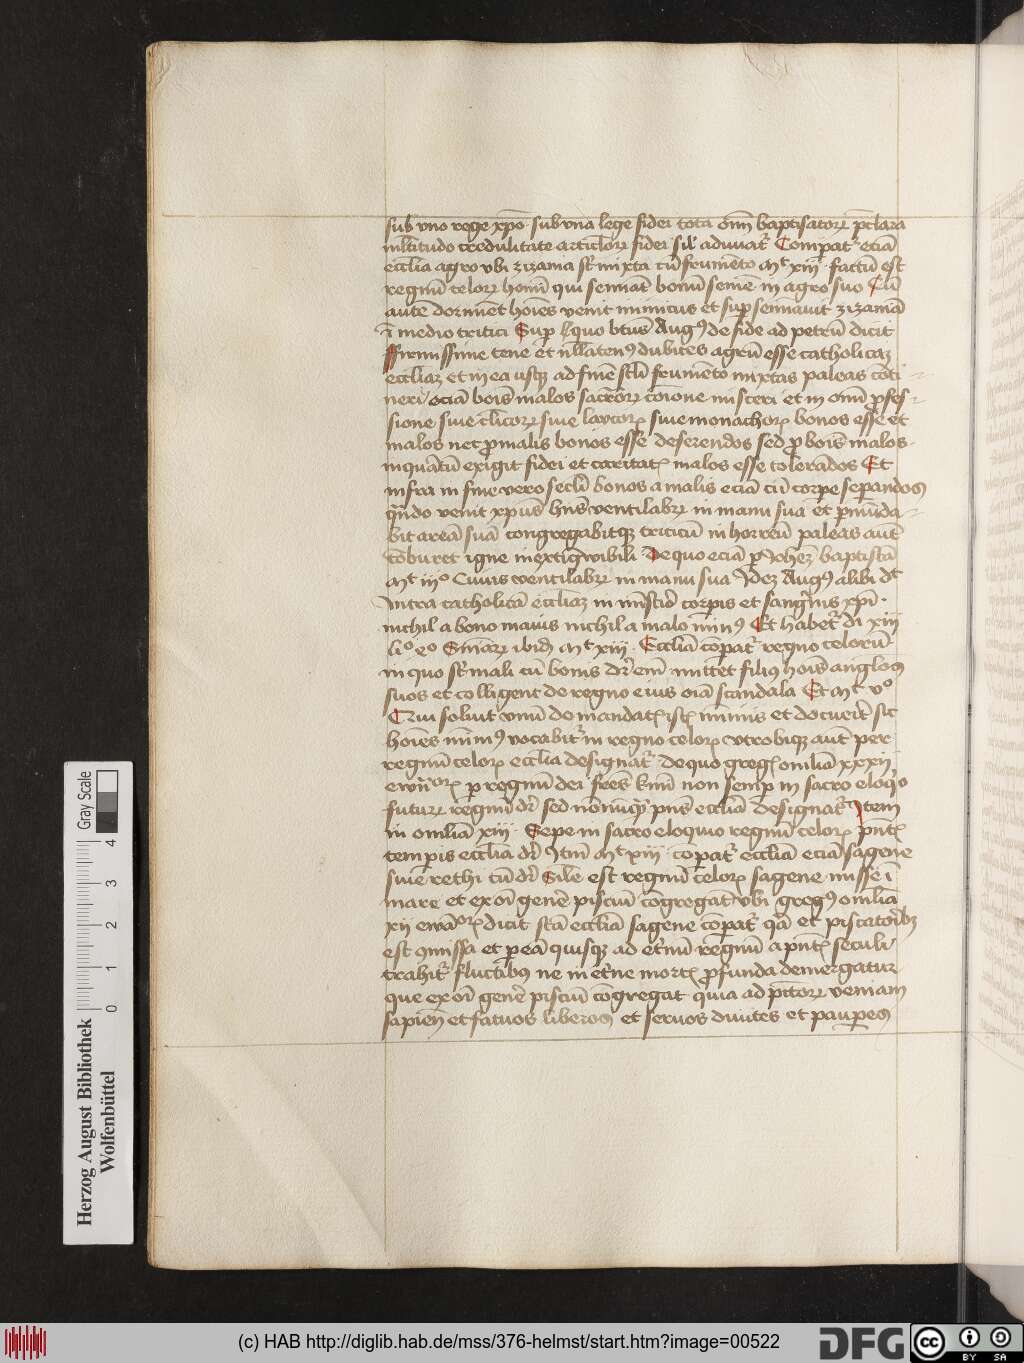 sub vno rege xp̄o sub vna lege fidei tota om̄ baptisatoꝝ p̄clara
ml̄titudo credulitate articlorꝝ fidei sil' aduuat᷑ Compat᷑ eciā
eccl̄ia agro vbi zizania st̄ mixta cū frumēto Mt xiij factū est
regnū celorꝝ homī qui semīat bonū semē in agro suo Cū
autē dormīet hoīes venit inimicus et suꝑ semīauit zizaniā
ī medio tritici Suꝑ quo bt̄us Augꝰ de fide ad petrū dicit
ffirmissime tene et nl̄latenꝰ dubites agrū esse catholicaꝫ
eccl̄iaꝫ et in ea usqꝫ ad finē sc̄li frumēto mixtas paleas cōti
neri eciā bois malos sac̄rorꝝ cōione misceri et in om̄i ꝓfes
sione siue cl̄icorꝝ siue laycorꝝ siue monachorꝝ bonos esse et
malos nec ꝓ malis bonos esse deserendos sed ꝓ bois malos
inquātū exigit fidei et caritatꝭ malos esse tolerādos Et
infra in fine vero secl̄i bonos a malis eciā cū corpe seꝑandos
qn̄do venit xp̄us hn̄s ventilabrꝝ in manu sua et ꝑmūda
bit areā suā congregabitqꝫ triticū in horreū paleas aut̄
cōburet igne inextigwibili De quo eciā ꝑ Joheꝫ baptistā
Mt iijo Cuius ventilabrꝝ in manu sua Jdeꝫ Augꝰ alibi dt̄
Jntra catholicā eccl̄iaꝫ in mīstio corpis et sangwīs xp̄i
nichil a bono maius nichil a malo minꝰ Et habet᷑ di xiij
li° e° Sinarꝝ ibid Mt xiij Eccl̄iā cōpat᷑ regno celorū
in quo st̄ mali cū bonis dr̄ em̄ mittet filiꝰ hois anglos
suos et colligent de regno eius oīa scandala Et Mt v°
Qui soluit vnū de mandatꝭ istꝭ mimis et docuerit sic
hoīes minīꝰ vocabit᷑ in regno celorꝝ vtrobiqꝫ aut̄ per
regnū celorꝝ eccl̄ia designat᷑ de quo gregꝰ omiliā xxxij
ewn̄iorꝝ ꝑ regnū dei fr̄es kmī non semꝑ in sacro eloqo
futurꝝ regnū dr̄ sed nōnūqꝫ pn̄s eccl̄ia designat᷑ Jtem
in omiliā xiij Sepe in sacro eloquio regnū celorꝝ pn̄tꝭ
temꝑis eccl̄ia dr̄ Jtm̄ Mt xiij cōpat᷑ eccl̄iā eciā sagene
siue rethi cū dr̄ Sile est regnū celorꝝ sagene misse ī
mare et ex oī genē pisciū cōgregat vbi gregꝰ omiliā
xij ewāorꝝ dicit sctā eccl̄iā sagene cōpat᷑ qā et piscatoribꝫ
est cōmissa et ꝑ eā quisqꝫ ad et̄nū regnū a pn̄tꝭ seculi
trahit᷑ fluctibꝰ ne in et̄ne mortꝭ ꝓfunda demergatur
que ex oī genē pisciū cōgregat quia ad pc̄torꝝ veniam
sapien̄ et fatuos liberos et seruos diuites et pauꝑes
Herzog August Bibliothek
Wolfenbüttel
Gray Scale
0 1 2 3 4
(c) HAB http://diglib.hab.de/mss/376-helmst/start.htm?image=00522
DFG
cc
BY SA